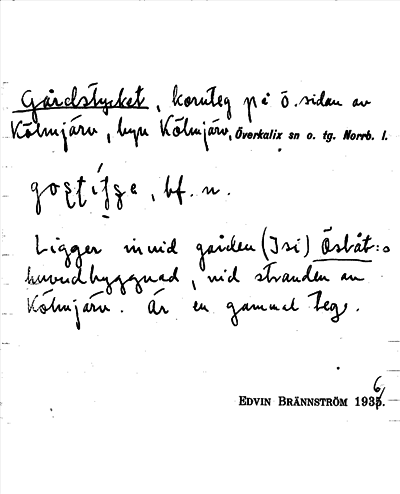 Gårdstycket, kornteg på ö. sidan av
Kölmjärv, byn Kölmjärv, Överkalix sn o. tg. Norrb. l.
bf. n.
Ligger invid gården (Isi) Östbåt:s
huvudbyggnad, vid stranden av
Kölmjärv. Är en gammal teg.
EDVIN BRÄNNSTRÖM 1936.